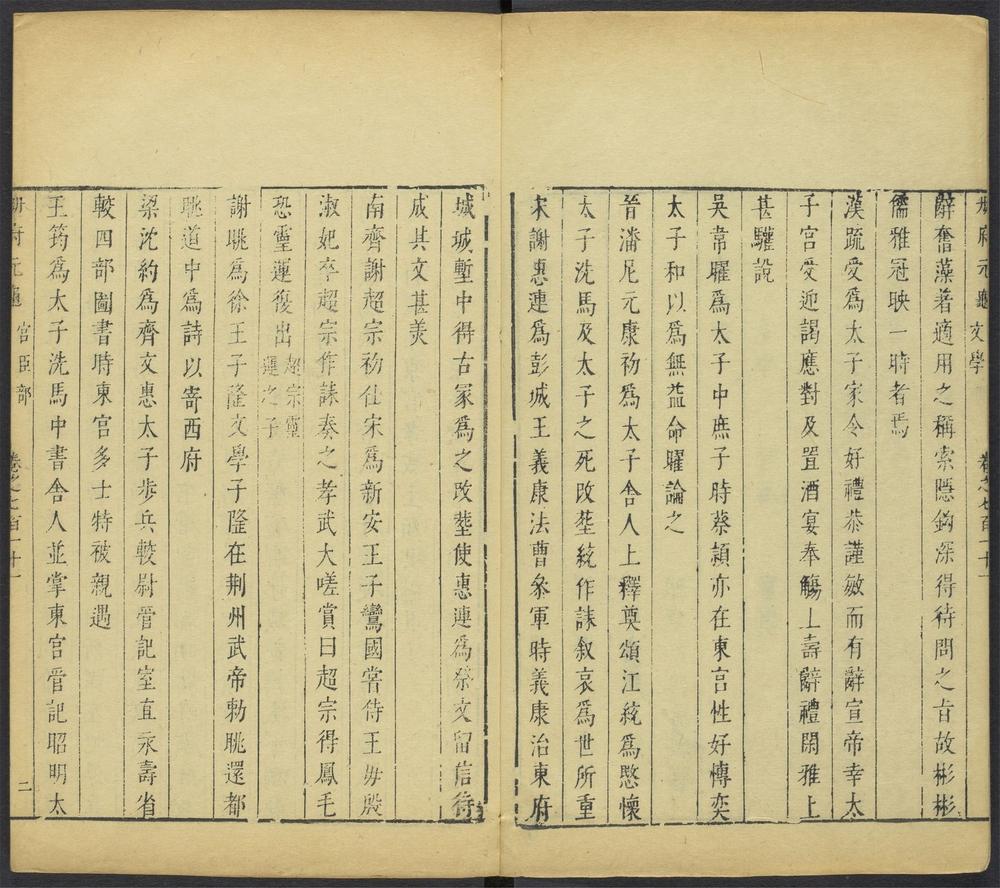 冊府元龜 文學 卷之七百一十一
辭奮藻著適用之稱索隱鈎深得待問之旨故彬彬
儒雅冠映一時者焉
漢疏受爲太子家令好禮恭謹敏而有辭宣帝幸太
子宮受迎謁應對及置酒宴奉觴上壽辭禮閑雅上
甚驩說
吳韋曜爲太子中庶子時蔡頴亦在東宮性好愽奕
太子和以爲無益命曜論之
晉潘尼元康初爲太子舍人上釋奠頌江統爲愍懷
太子洗馬及太子之死改塟統作誄叙哀爲世所重
宋謝惠連爲彭城王義康法曹叅軍時義康治東府
城城塹中得古冢爲之改塟使惠連爲祭文留信待
成其文甚美
南齊謝超宗初仕宋爲新安王子鸞國常侍王毋殷
淑妃卒超宗作誄奏之孝武大嗟賞曰超宗得鳳毛
恐靈運復出超宗靈運之子
謝眺爲徐王子隆文學子隆在荆州武帝勑眺還都
眺道中爲詩以寄西府
梁沈約爲齊文惠太子步兵較尉管記室直永壽省
較四部圖書時東宮多士特被親遇
王筠爲太子洗馬中書舍人並掌東宮管記昭明太
冊府元龜 宮臣部 卷之七百一十一 二